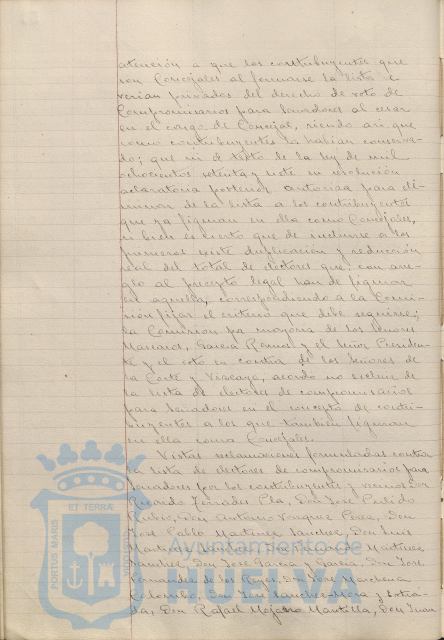 atención a que los contribuyentes que
son Concejales al formarse la lista se
verian privados del derecho de voto de
Compromisarios para Senadores al cesar
en el cargo de Concejal, siendo asi que
como contribuyentes lo habian conserva-
do; que ni el texto de la ley de mil
ochocientos setenta y siete ni resolución
aclaratoria posterior autoriza para eli-
minar de la lista a los contribuyentes
que ya figuran en ella como Concejales,
si bien es cierto que de incluirse a los
primeros existe duplicación y reducción
real del total de electores que, con arre-
glo al precepto legal han de figurar
en aquella, correspondiendo a la Comi-
sión fijar el criterio que debe seguirse;
la Comisión por mayoria de los Señores
Garcia Ramos y el Señor Presiden-
te y el voto en contra de los Señores de
la Corte y Vizcaya, acordó no excluir de
la lista de electores de compromisarios
para Senadores en el concepto de contri-
buyentes a los que tambien figuran
en ella como Concejales.
Vistas reclamaciones formuladas contra
la lista de electores de compromisarios para
Senadores por los contribuyentes y vecinos Don
Ricardo Terrades Pla, Don José Pulido
Rubio, Don Antonio Vazquez Perez, Don
José Pablo Martinez Sanchez, Don Luis
Martinez Sanchez, Don Martinez
Sanchez, Don José Garcia y Garcia, Don José
Fernandez de los Reyes, Don José Marchena
Colombo, Don José Sanchez-Mora y
Don Rafael Mojarro Mantilla, Don Juan
PORTUS MARIS
ET TERRAE
Ayuntamiento de
HUELVA